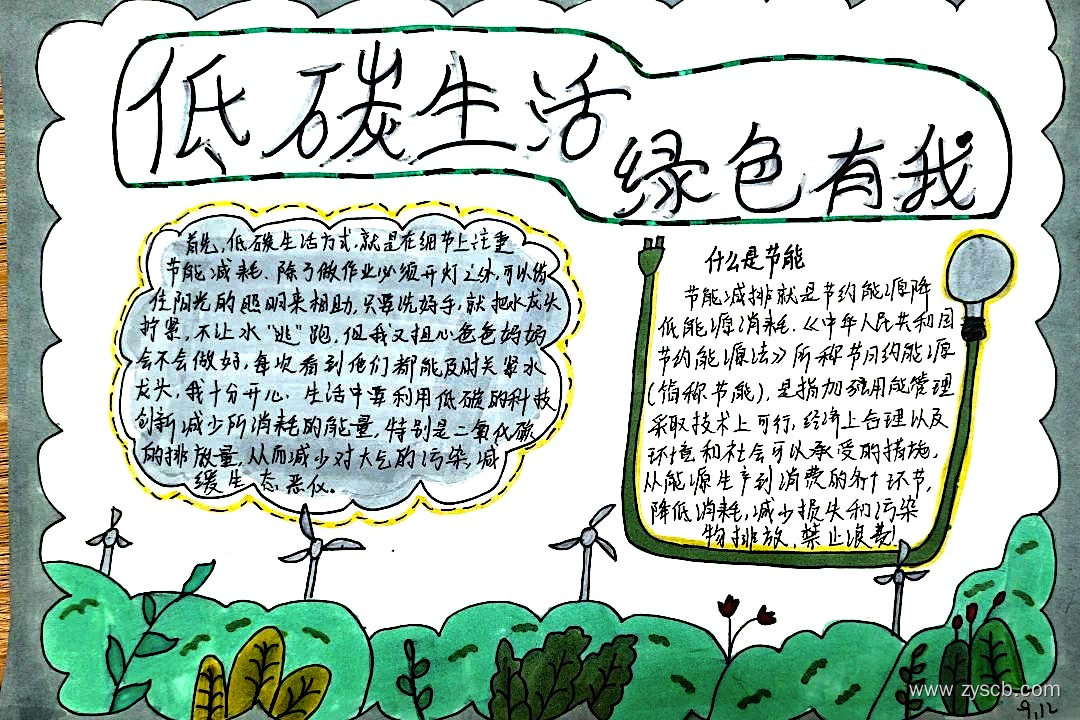 低碳生活
绿色有我
首先，低碳生活方式，就是在细节上注重
节能减耗．除了做作业必须开灯之外，可以借
住阳光的照明来相助，只要洗好手，就把水龙头
拧紧，不让水“逃”跑，但我又担心爸爸妈妈
会不会做好，每次看到他们都能及时关紧水
龙头，我十分开心．生活中要利用低碳的科技
创新减少所消耗的能量，特别是二氧低碳
的排放量，从而减少对大气的污染，减
缓生态恶仪．
什么是节能
节能减排就是节约能源降
低能源消耗．《中华人民共和国
节约能源法》所称节约能源
（简称节能），是指加强用能管理
采取技术上可行，经济上合理以及
环境和社会可以承受的措施，
从能源生产到消费的各个环节，
降低消耗，减少损失和污染
物排放，禁止浪费！
www.zyscb.com
9.12